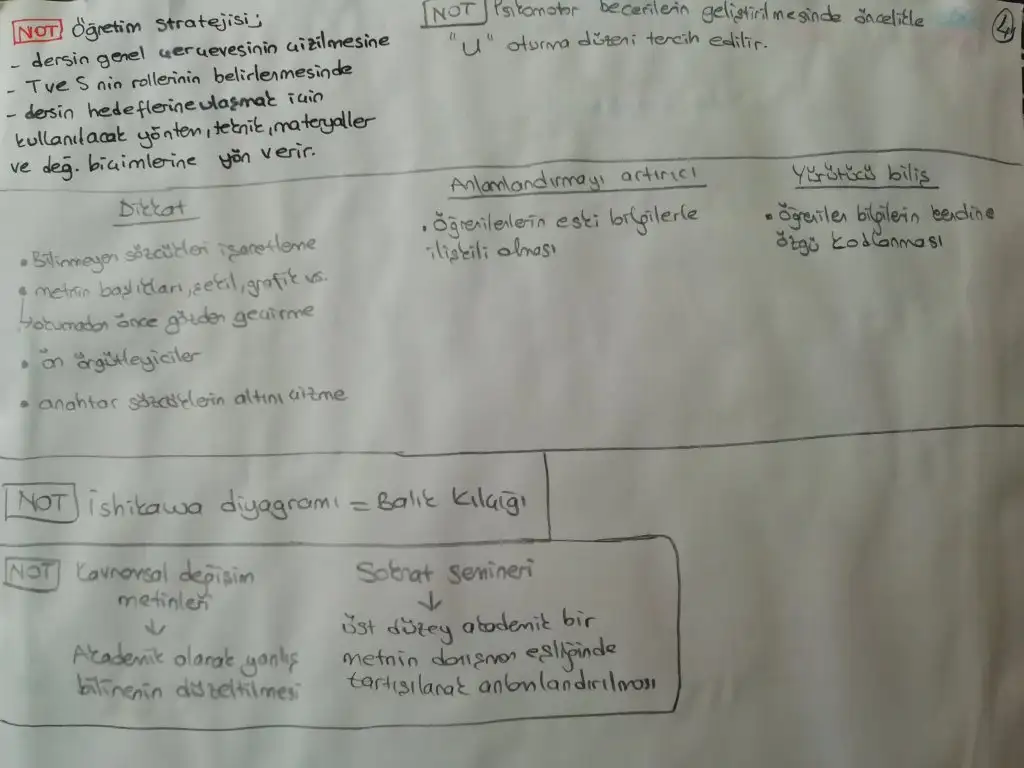 NOT Öğretim stratejisi;
- dersin genel çerçevesinin çizilmesine
- T ve S nin rollerinin belirlenmesinde
- dersin hedeflerine ulaşmak için
kullanılacak yöntem, teknik, materyaller
ve değ. biçimlerine yön verir.
NOT Psikomotor becerilerin geliştirilmesinde öncelikle
"U" oturma düzeni tercih edilir.
4
Dikkat
• Bilinmeyen sözcükleri işaretleme
• metnin başlıkları, şekil, grafik vs.
okumadan önce gözden geçirme
• ön örgütleyiciler
• anahtar sözcüklerin altını çizme
Anlamlandırmayı artırıcı
• Öğrenilenlerin eski bilgilerle
ilişkili olması
Yürütücü biliş
• Öğrenilen bilgilerin kendine
özgü kodlanması
NOT ishikawa diyagramı = Balık kılçığı
NOT Kavramsal değişim
metinleri
↓
Akademik olarak yanlış
bilinenin düzeltilmesi
Sokrat semineri
↓
üst düzey akademik bir
metnin danışman eşliğinde
tartışılarak anlamlandırılması